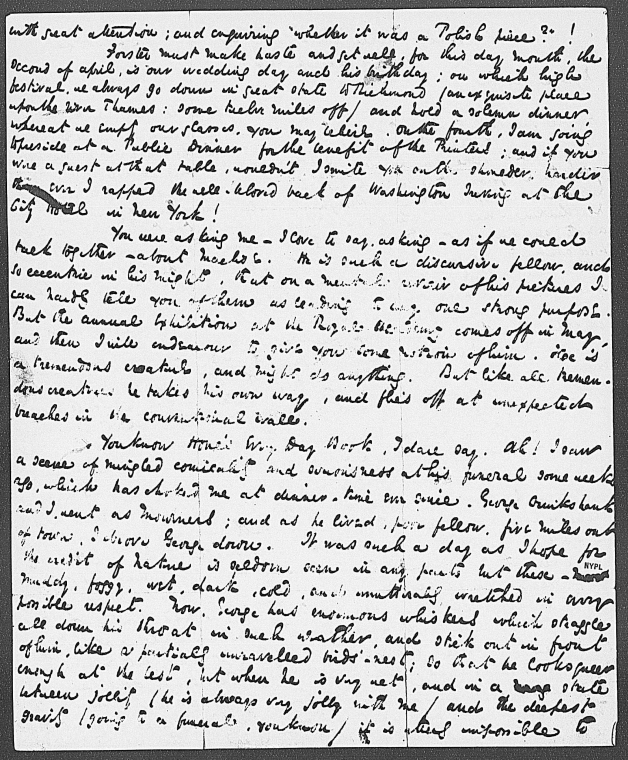 with great attention; and enquiring "whether it was a Polish piece?" !
Forster must make haste and get well, for this day month, the
second of April, is our wedding day and his birthday; on which high
festival, we always go down in great state to Richmond (an exquisite place
upon the river Thames: some twelve miles off) and hold a solemn dinner,
whereat we empt our glasses, you may believe. On the fourth, I am going
to preside at a Public Dinner for the benefit of the Printers; and if you
were a guest at that table, wouldn't I smite you on the shoulder, harder
than ever I rapped the well-beloved back of Washington Irving at the
City Hotel in New York!
You were asking me – I love to say, asking – as if we could
talk together – about Maclise. He is such a discursive fellow, and
so eccentric in his might, that on a mental review of his pictures I
can hardly tell you of them as leading to any one strong purpose.
But the annual Exhibition at the Royal Academy comes off in May,
and then I will endeavour to give you some notion of him. He is
a tremendous creature, and might do anything. But like all tremen-
dous creatures he takes his own way, and flies off at unexpected
breaches in the conventional walls.
You know Hone's Every Day Book, I dare say. Ah! I saw
a scene of mingled comicality and seriousness at his funeral some weeks
ago, which has choked me at dinner-time ever since. George Cruikshank
and I went as mourners; and as he lived, poor fellow, five miles out
of town, I drove George down. It was such a day as I hope for
the credit of Nature is seldom seen in any parts but these –
NYPL
muddy, foggy, wet, dark, cold, and unutterably wretched in every
possible respect. Now, George has enormous whiskers which straggle
all down his throat in such weather, and stick out in front
of him, like a partially unravelled bird's-nest; so that he looks queer
enough at the best, but when he is very wet, and in a state
between jollity (he is always very jolly with me) and the deepest
gravity (going to a funeral, you know) it is utterly impossible to